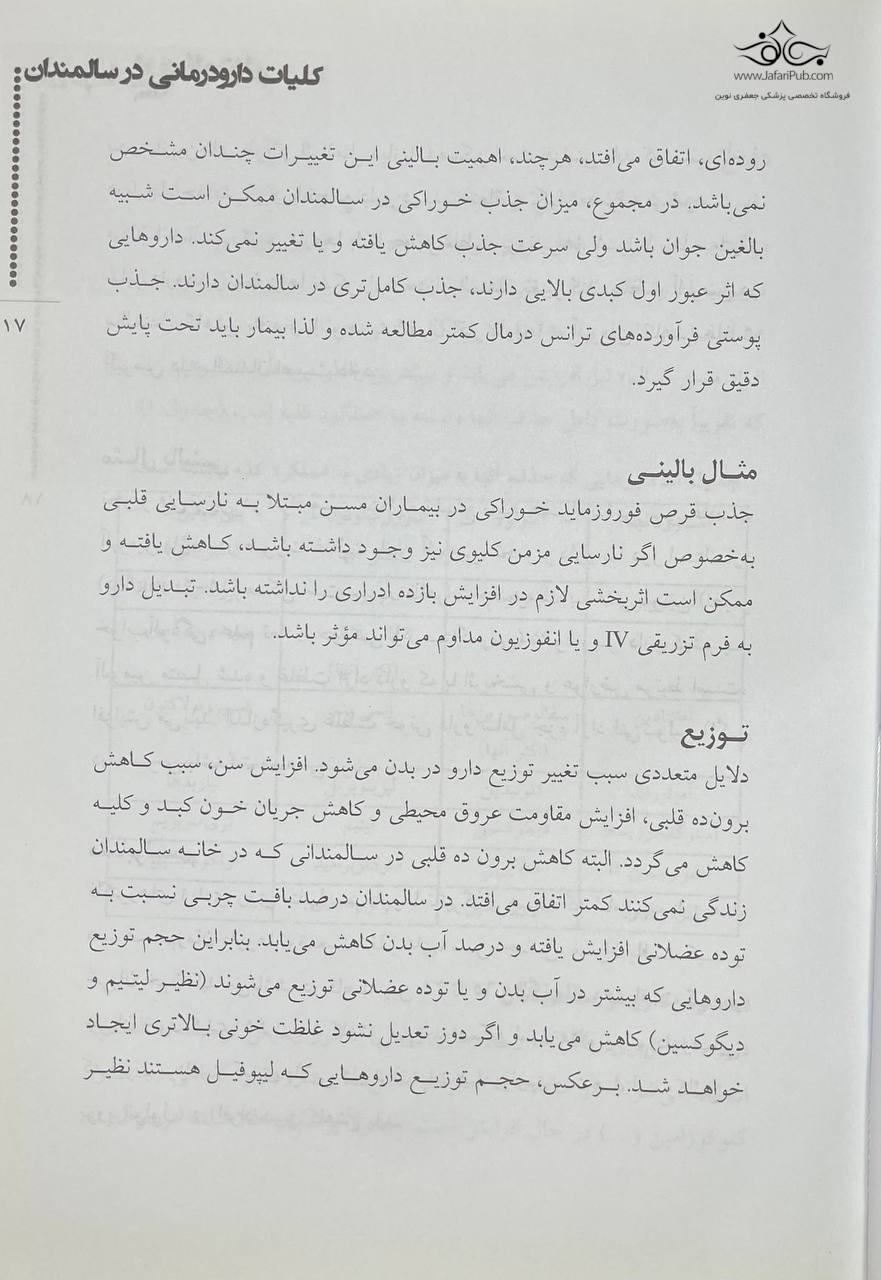 بهاف
www.JafariPub.com
فروشگاه تخصصی پزشکی جعفری نوین
کلیات دارودرمانی در سالمندان
۱۷
روده‌ای، اتفاق می‌افتد، هرچند، اهمیت بالینی این تغییرات چندان مشخص
نمی‌باشد. در مجموع، میزان جذب خوراکی در سالمندان ممکن است شبیه
بالغین جوان باشد ولی سرعت جذب کاهش یافته و یا تغییر نمی‌کند. داروهایی
که اثر عبور اول کبدی بالایی دارند، جذب کامل‌تری در سالمندان دارند. جذب
پوستی فرآورده‌های ترانس درمال کمتر مطالعه شده و لذا بیمار باید تحت پایش
دقیق قرار گیرد.
مثال بالینی
جذب قرص فوروزماید خوراکی در بیماران مسن مبتلا به نارسایی قلبی
به‌خصوص اگر نارسایی مزمن کلیوی نیز وجود داشته باشد، کاهش یافته و
ممکن است اثربخشی لازم در افزایش بازده ادراری را نداشته باشد. تبدیل دارو
به فرم تزریقی IV و یا انفوزیون مداوم می‌تواند مؤثر باشد.
توزیع
دلایل متعددی سبب تغییر توزیع دارو در بدن می‌شود. افزایش سن، سبب کاهش
برون‌ده قلبی، افزایش مقاومت عروق محیطی و کاهش جریان خون کبد و کلیه
کاهش می‌گردد. البته کاهش برون ده قلبی در سالمندانی که در خانه سالمندان
زندگی نمی‌کنند کمتر اتفاق می‌افتد. در سالمندان درصد بافت چربی نسبت به
توده عضلانی افزایش یافته و درصد آب بدن کاهش می‌یابد. بنابراین حجم توزیع
داروهایی که بیشتر در آب بدن و یا توده عضلانی توزیع می‌شوند (نظیر لیتیم و
دیگوکسین) کاهش می‌یابد و اگر دوز تعدیل نشود غلظت خونی بالاتری ایجاد
خواهد شد. برعکس، حجم توزیع داروهایی که لیپوفیل هستند نظیر